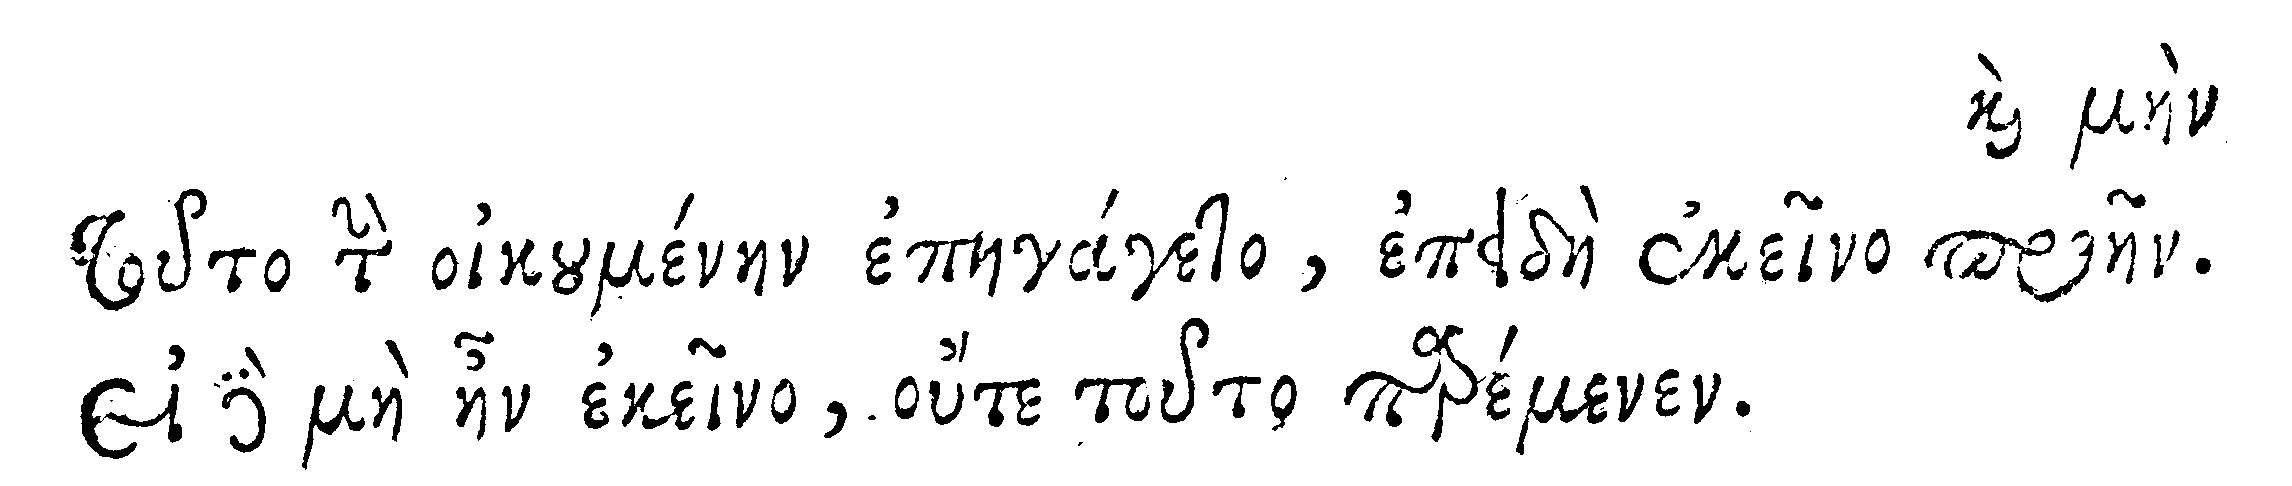 καὶ μὴν
τοῦτο τὴν οἰκουμένην ἐπηγάγετο, ἐπειδὴ ἐκεῖνο προῆν.
Εἰ γὰρ μὴ ἦν ἐκεῖνο, οὔτε τοῦτο παρέμενεν.